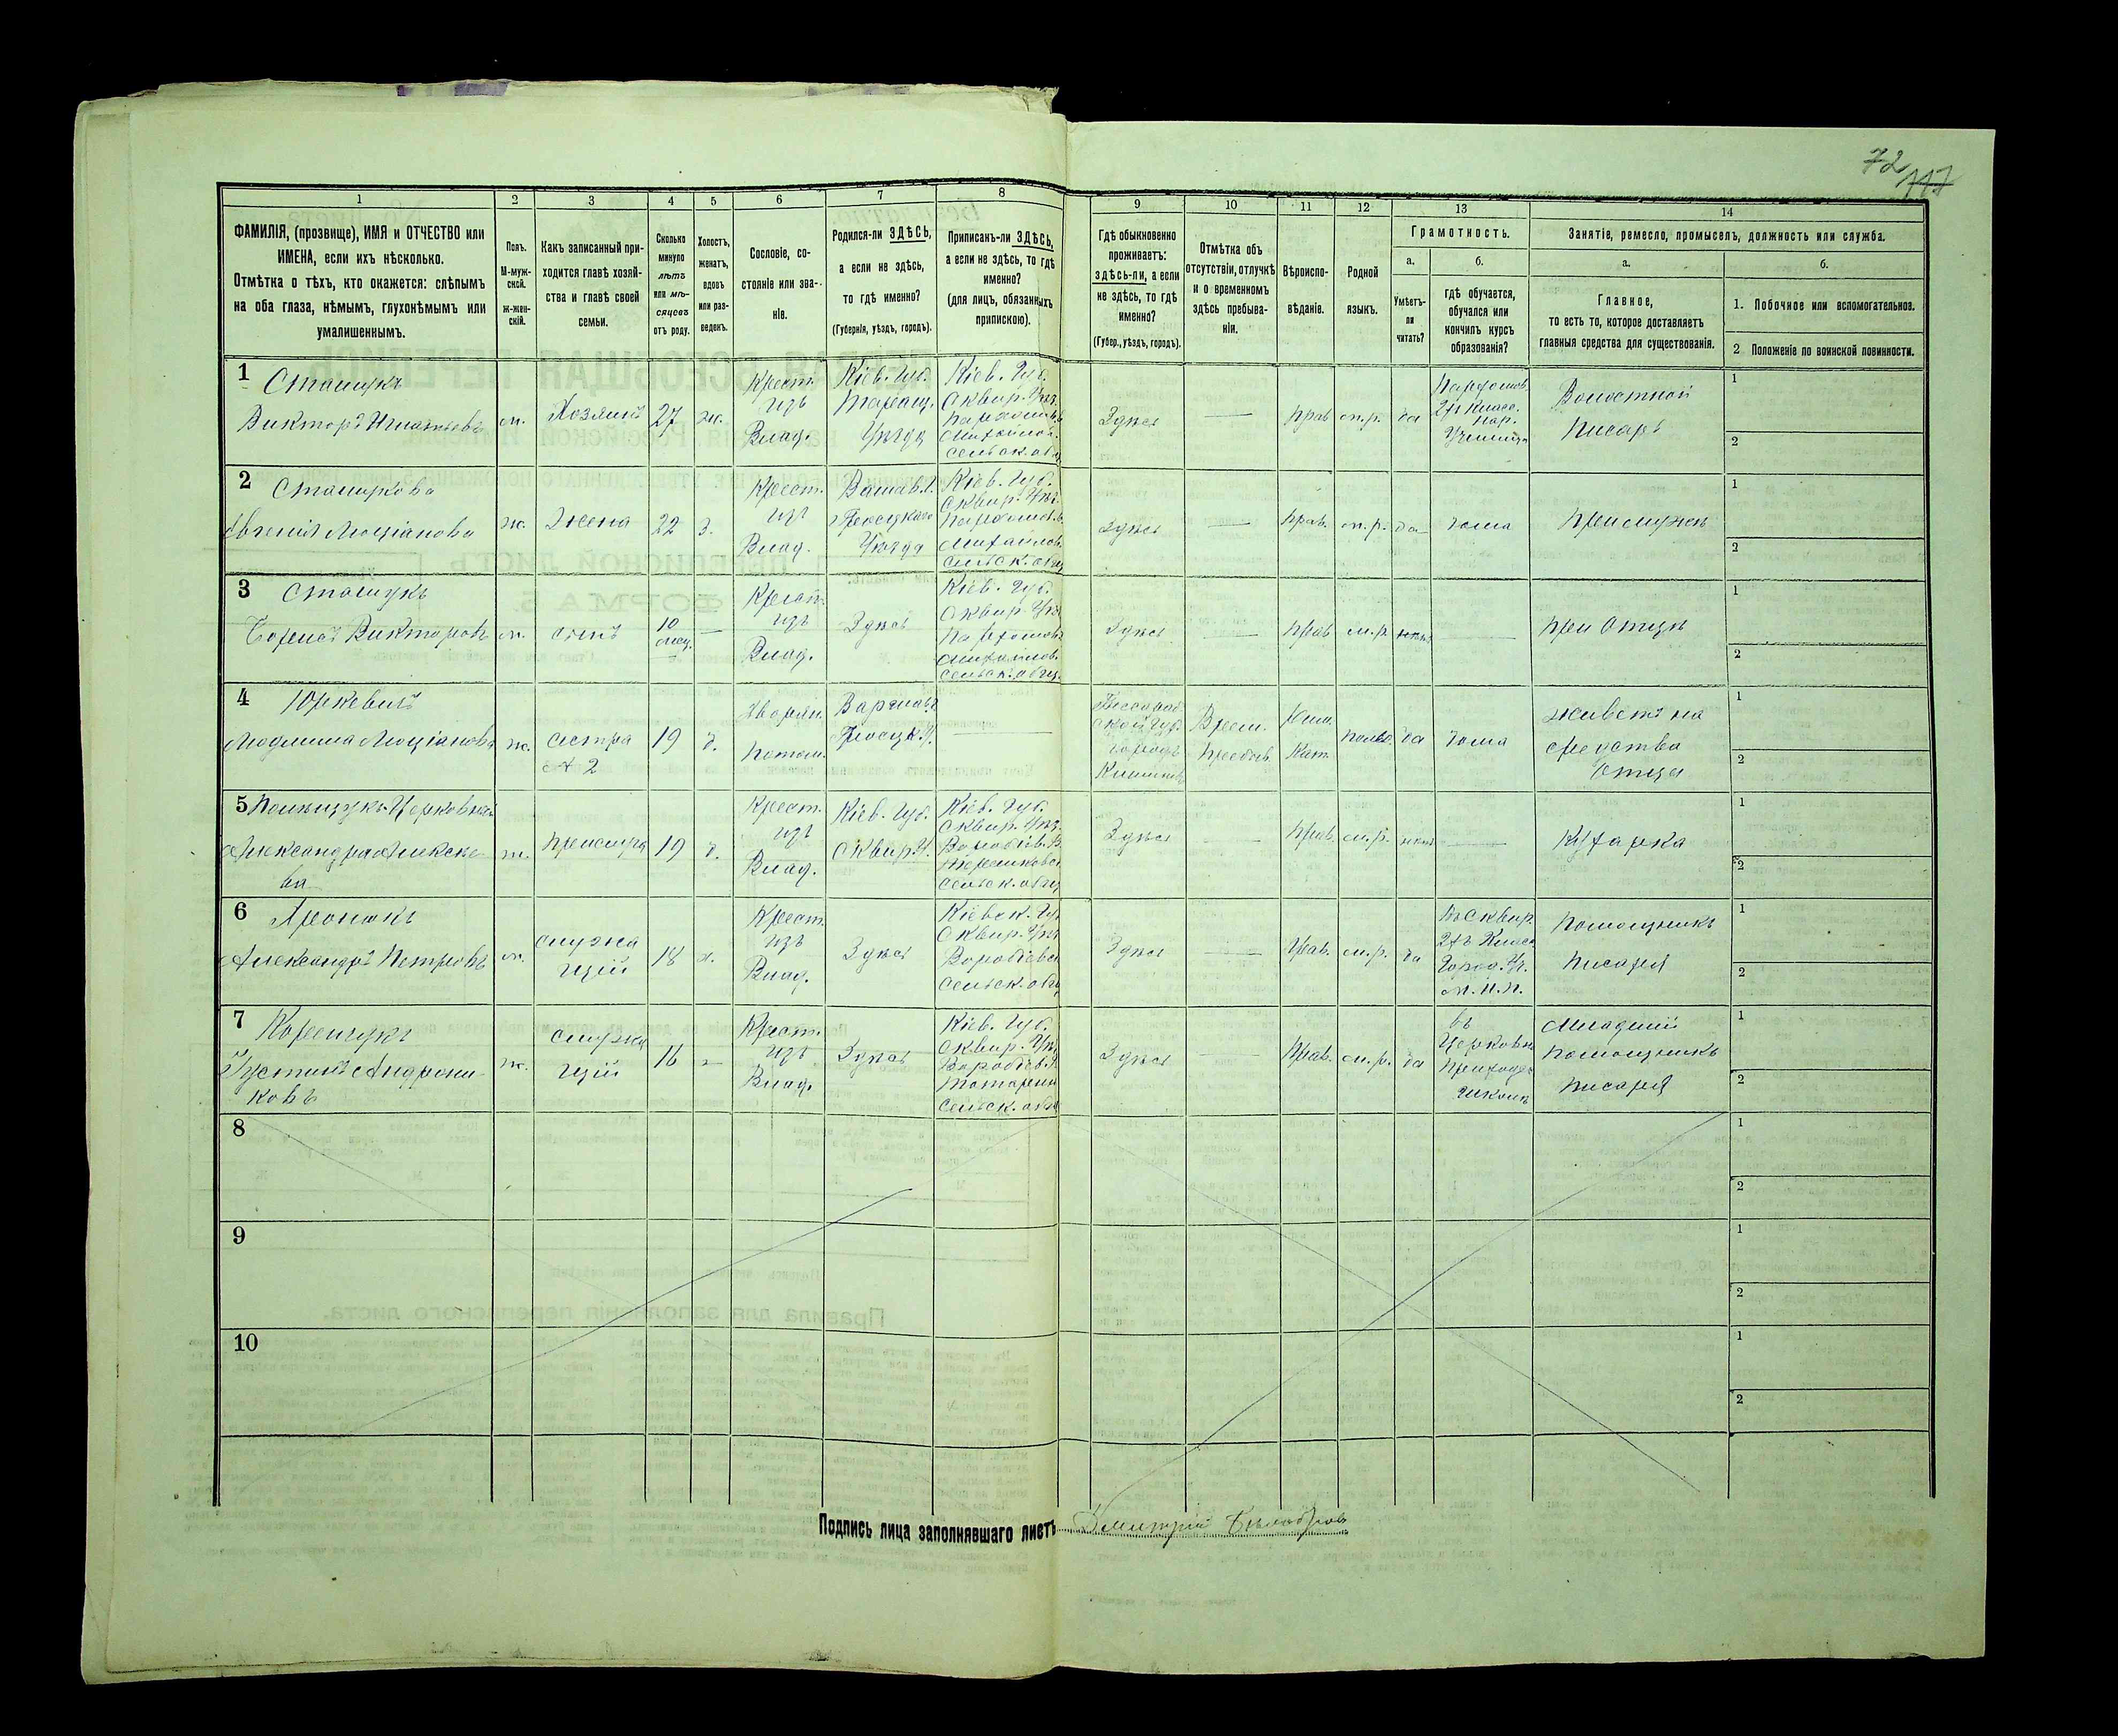 72
117
1
2
3
4
5
6
7
8
9
10
11
12
13
14
ФАМИЛІЯ, (прозвище), ИМЯ и ОТЧЕСТВО или
ИМЕНА, если ихъ нѣсколько.
Отмѣтка о тѣхъ, кто окажется: слѣпымъ
на оба глаза, нѣмымъ, глухонѣмымъ или
умалишеннымъ.
Полъ.
М-муж-
ской.
ж-жен-
скій.
Какъ записанный при-
ходится главѣ хозяй-
ства и главѣ своей
семьи.
Сколько
минуло
лѣтъ
или мѣ-
сяцевъ
отъ роду.
Холостъ,
женатъ,
вдовъ
или раз-
веденъ.
Сословіе, со-
стояніе или зва-
ніе.
Родился-ли ЗДѢСЬ,
а если не здѣсь,
то гдѣ именно?
(Губернія, уѣздъ, городъ).
Приписанъ-ли ЗДѢСЬ,
а если не здѣсь, то гдѣ
именно?
(для лицъ, обязанныхъ
припискою).
Гдѣ обыкновенно
проживаетъ:
здѣсь-ли, а если
не здѣсь, то гдѣ
именно?
(Губер., уѣздъ, городъ).
Отмѣтка объ
отсутствіи, отлучкѣ
и о временномъ
здѣсь пребыва-
ніи.
Вѣроиспо-
вѣданіе.
Родной
языкъ.
Грамотность.
а.
Умѣетъ-
ли
читать?
б.
гдѣ обучается,
обучался или
кончилъ курсъ
образованія?
Занятіе, ремесло, промыселъ, должность или служба.
а.
Главное,
то есть то, которое доставляетъ
главныя средства для существованія.
б.
1. Побочное или вспомогательное.
2 Положеніе по воинской повинности.
1
Сташукъ
Викторъ Игнатьевъ
м.
Хозяинъ
27
ж.
Крест.
изъ
Влад.
Кіев. Губ.
Таращ.
Уѣзда
Кіев. Губ.
Сквир. Уѣз.
Михайлов.
сельск. общ
Здѣсь
—
Прав
м.р.
да
2х класс.
нар.
Училищѣ
Волостной
Писарь
1
2
2
Сташукова
Евгенія Люціанова
ж.
Жена
22
з.
Крест.
изъ
Влад.
Уѣзда
Кіев. Губ.
Сквир. Уѣз.
Михайлов.
сельск. общ
здѣсь
—
Прав.
м.р.
да
дома
При мужѣ
1
2
3
Сташукъ
Борисъ Викторовъ
м.
сынъ
10
мѣсц.
—
Крест.
изъ
Влад.
Здѣсь
Кіев. Губ.
Сквир. Уѣз
Михайлов.
сельск. общ.
Здѣсь
—
Прав
м.р
нѣтъ
—
При Отцѣ
1
2
4
Юркевичъ
Людмила Люціанова
ж.
сестра
№ 2
19
д.
Дворян.
Потом.
Варшав.
—
Бессараб
ской Губ.
городъ
Кишинев
Врем.
Пребыв.
Рим.
Кат.
Польс.
да
дома
живетъ на
средства
Отца
1
2
5
Полищукъ-Церковная
Александра Алексѣе-
ва
ж.
прислуга
19
д.
Крест.
изъ
Влад.
Кіев. Губ.
Сквир. У.
Кіев. Губ.
Сквир. Уѣз.
сельск. общ
Здѣсь
—
Прав.
м.р.
нѣтъ
—
Кухарка
1
2
6
Александръ Петровъ
м.
служа
щій
18
х.
Крест.
изъ
Влад.
Здѣсь
Кіевск. Губ
Сквир. Уѣз
сельск. общ
Здѣсь
—
Прав.
м.р.
да
въ Сквир.
2хъ Класс
Город. Уч.
М.Н.П.
Помощникъ
Писаря
1
2
7
Устинъ Андрони-
ковъ
служа
щій
16
—
Крест.
изъ
Влад.
Здѣсь
Кіев. Губ.
Сквир. Уѣз
сельск. общ
Здѣсь
—
Прав.
м.р.
да
въ
Церковно
Приходск
школѣ
Младшій
помощникъ
писаря
1
2
8
1
2
9
1
2
10
1
2
Подпись лица заполнявшаго листъ
Дмитрій